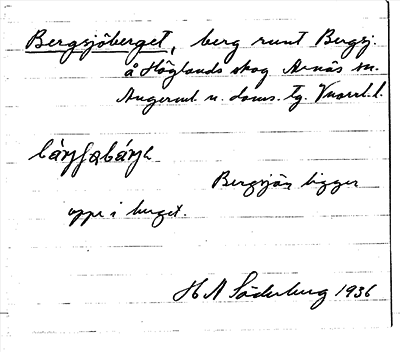 Bergsjöberget, berg runt Bergsj.
å Höglands skog Arnäs sn.
Ångerml. n. doms. tg. Vnorrl. l.
Bergsjön ligger
uppe i berget.
H A Söderberg 1936